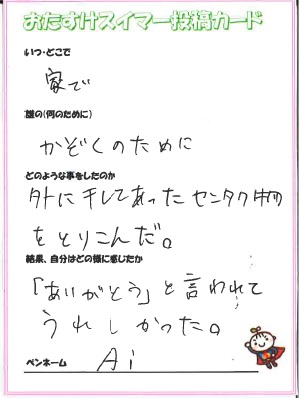 おたすけスイマー投稿カード
いつ・どこで
家で
誰の(何のために)
かぞくのために
どのような事をしたのか
外に干してあったセンタク物
をとりこんだ。
結果、自分はどの様に感じたか
「ありがとう」と言われて
うれしかった。
ペンネーム Ai